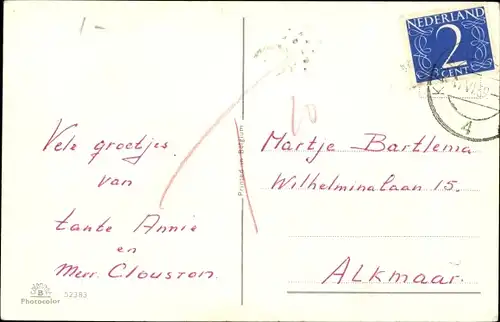 1-
NEDERLAND
2
CENT
4
10
Vele groetjes
van
tante Annie
en
Mevr. Clouston.
Printed in Belgium
Martje Bartlema
Wilhelminalaan 15.
ALKMAAR.
B
Photocolor
52383